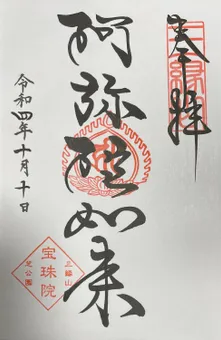 奉拝
阿弥陀如来
令和四年十月十日
三縁山
宝珠院
芝公園